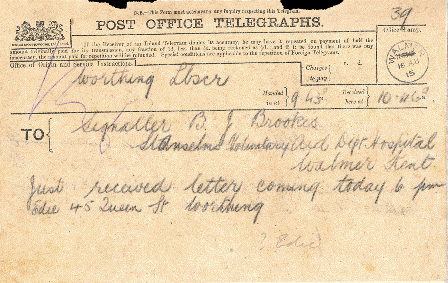 N.B.—This Form must accompany any Inquiry respecting this Telegram.
POST OFFICE TELEGRAPHS.
39
If the Receiver of an Inland Telegram doubts its accuracy, he may have it repeated on payment of half the
amount originally paid for its transmission, any fraction of 1d. less than ½d. being reckoned as ½d.; and if it be found that there was any
inaccuracy, the amount paid for repetition will be refunded. Special conditions are applicable to the repetition of Foreign Telegrams.
Office of Origin and Service Instructions.
Worthing
Charges to pay
s. d.
Handed in at
9.45
Received here at
10.46
WALMER
16 AU
15
TO
Signaller B. J. Brookes
St Anselms Voluntary Aid Dept Hospital
Walmer Kent
Just received letter coming today 6 pm
Edie 45 Queen St Worthing
? Edie